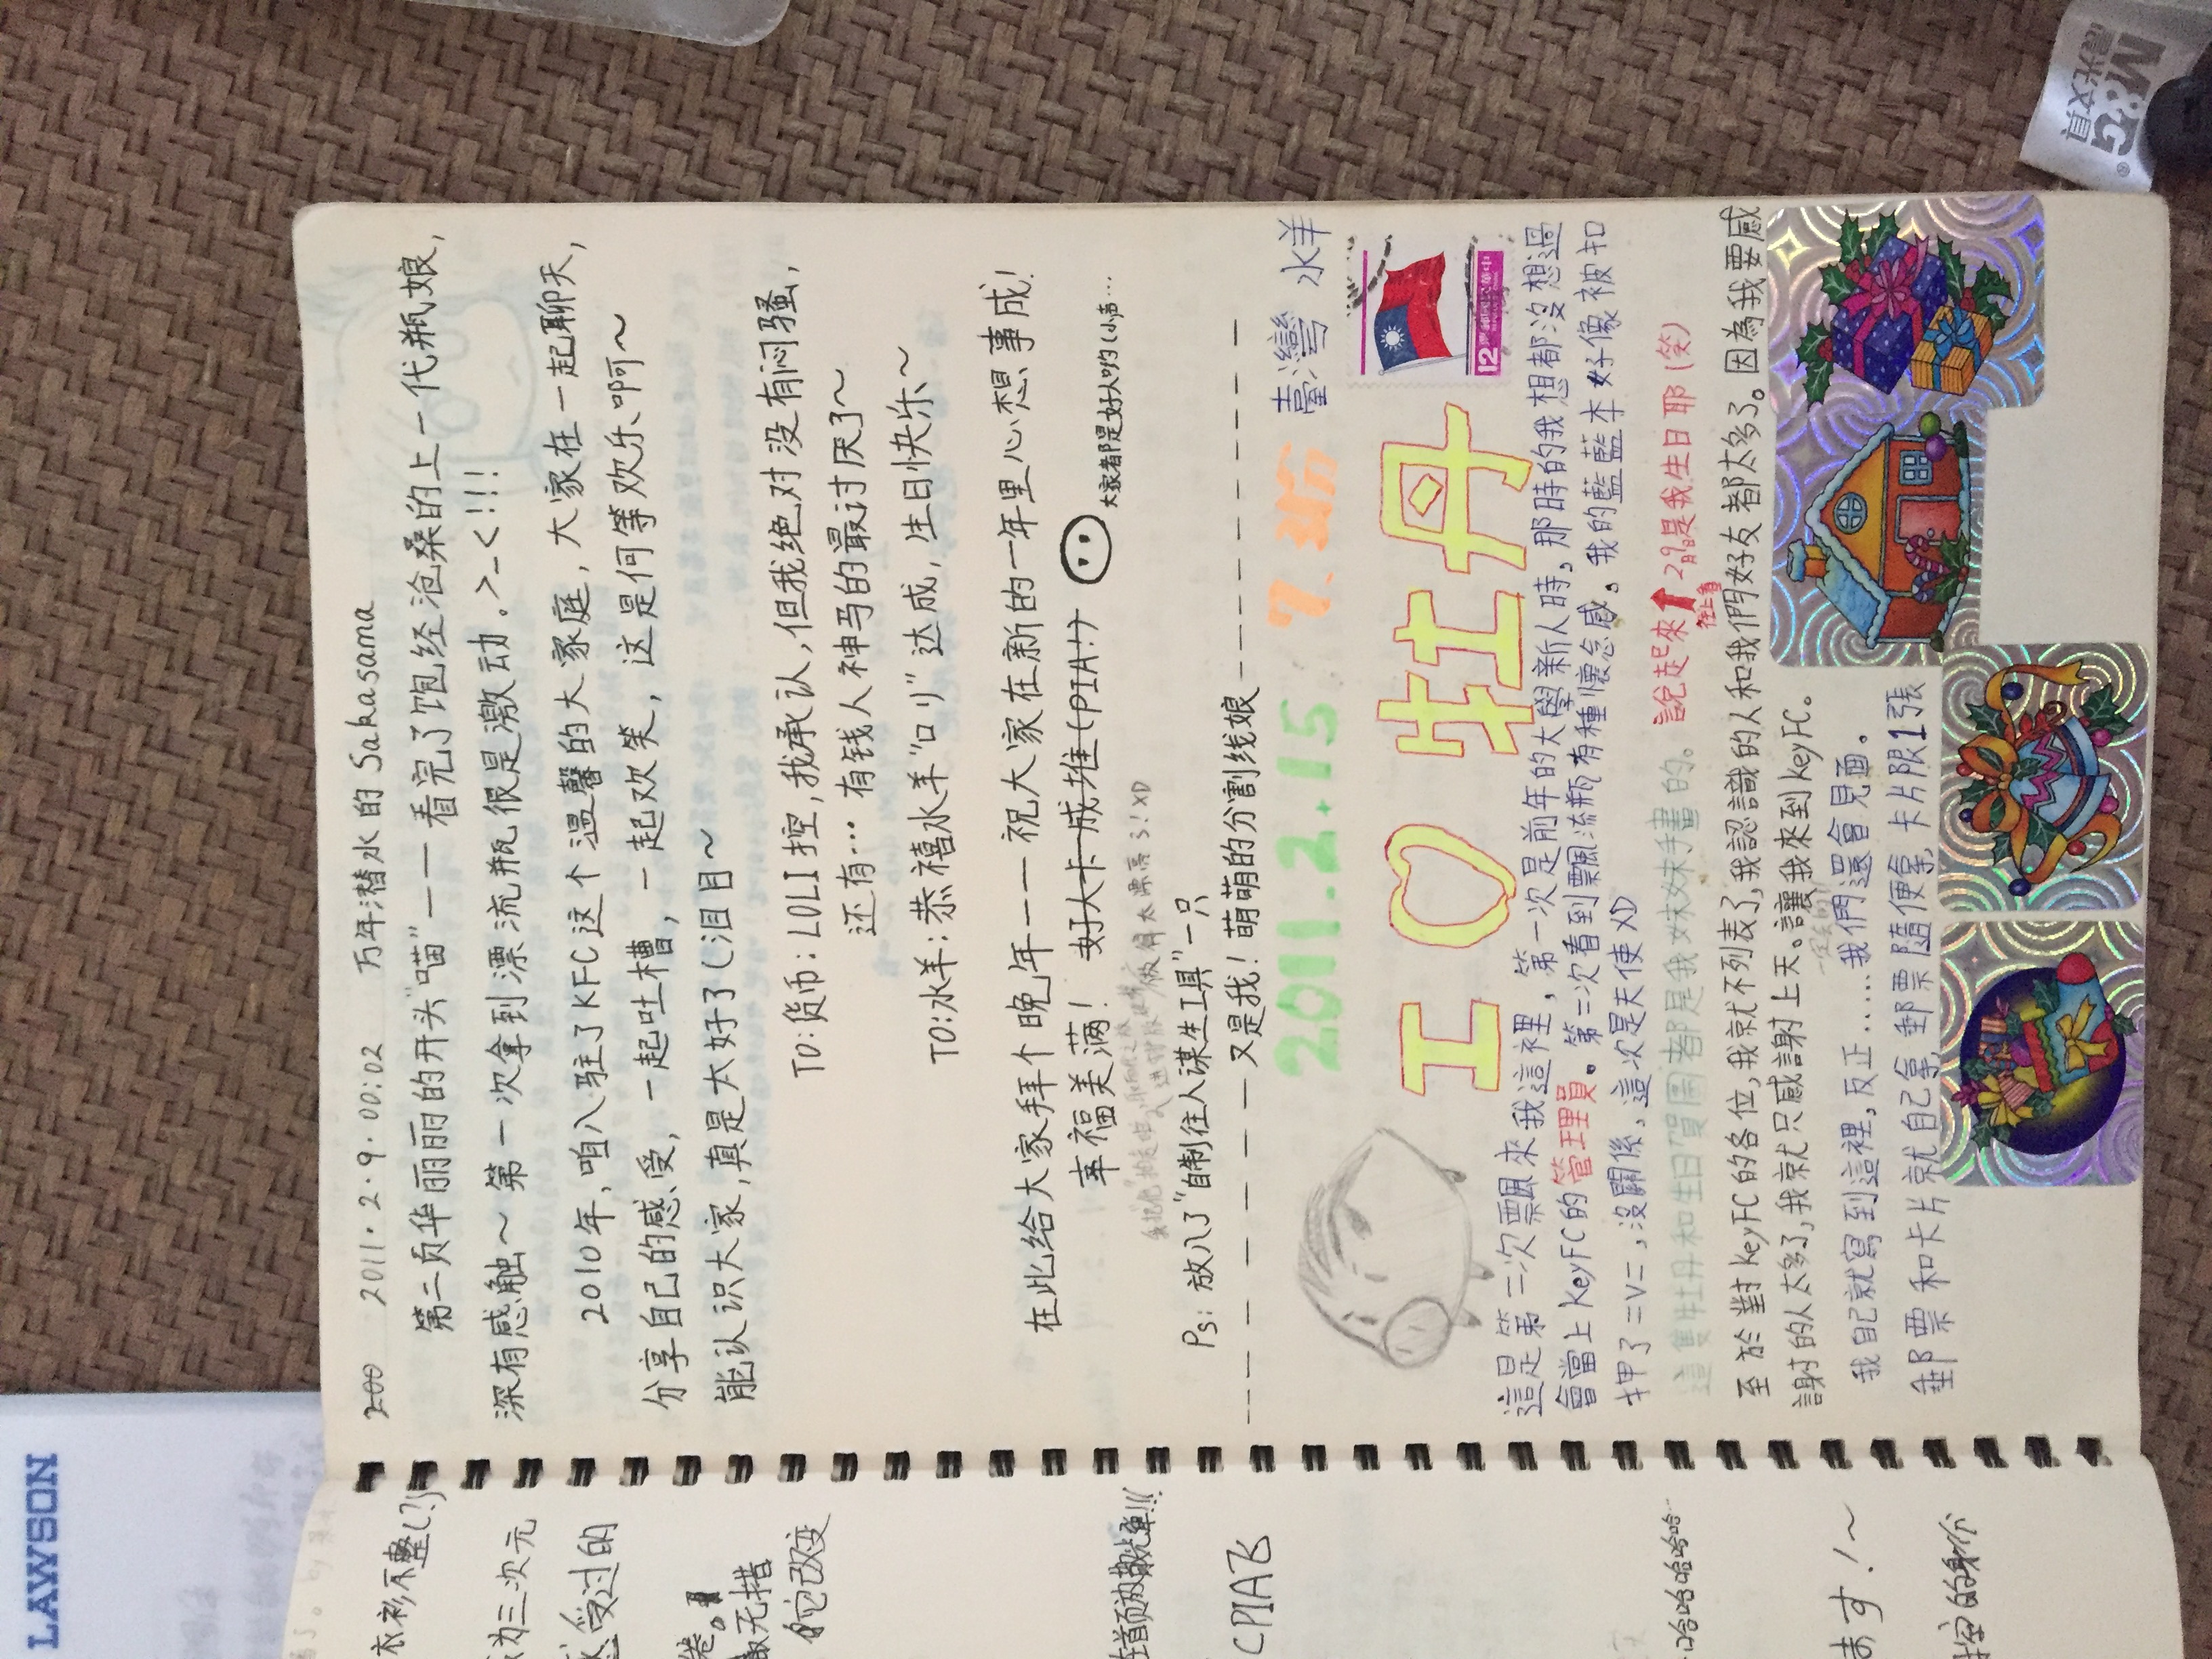 2011.2.9.00:02 万年潜水的Sakasama
第二页华丽丽的开头"喵"——看完了饱经沧桑的上一代瓶娘,
深有感触~第一次拿到漂流瓶很是激动。>_<!!!
2010年,咱入驻了KFC这个温馨的大家庭,大家在一起聊天,
分享自己的感受,一起吐槽,一起欢笑,这是何等欢乐啊~
能认识大家,真是太好了(泪目~
TO:货币:LOLI控,我承认,但我绝对没有闷骚,
还有…有钱人神马的最讨厌了~
TO:水羊:恭禧水羊"ロリ"达成,生日快乐~
在此给大家拜个晚年——祝大家在新的一年里心想事成!
幸福美满! 好人卡成堆(PIA!)
大家都是好人哟(小声…
Ps:放入了"自制往人谋生工具"一只
———又是我!萌萌的分割线娘———
2011.2.15 臺灣 水羊
I ♡ 牡丹
這是第二次飄來我這裡,第一次是前年的大學新人時,那時的我想都沒想過
會當上KeyFC的管理員。第二次看到飄流瓶有種懷念感,我的藍藍本好像被扣
押了=V=,沒關係,這次是天使XD
這隻牡丹和生日賀圖都是我妹妹手畫的。
說起來 往上看 2月9日是我生日耶(笑)
至於對keyFC的各位,我就不列表了,我認識的人和我們好友都太多了。因為我要感
謝的人太多了,我就只感謝上天。讓我來到keyFC。
我自己就寫到這裡,反正……我們還會見面。
一定的!
郵票和卡片就自己拿,郵票隨便拿,卡片限1張
12
LAWSON
衣衫不整(?)
为三次元
受过的
无措
改变
CPIA飞
哈哈哈哈哈哈…
ます!~
的身份
M&G
晨光文具